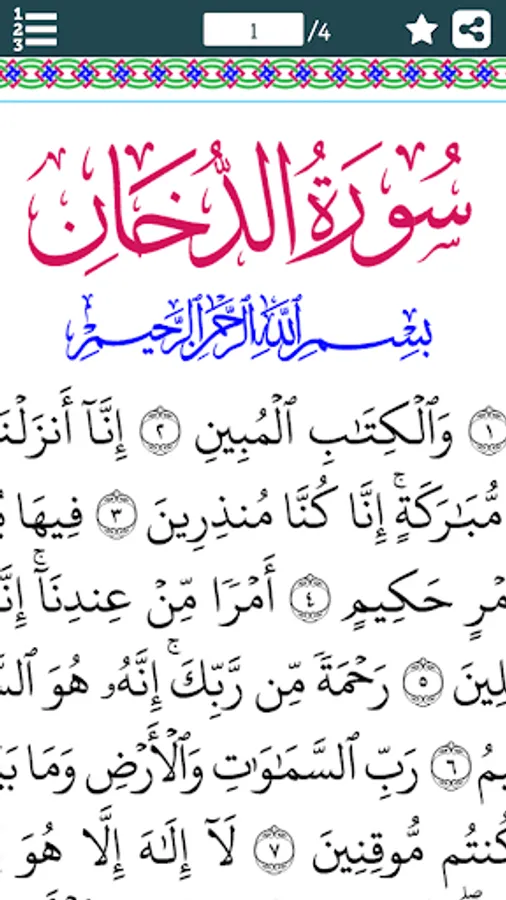 1 2 3
1 /4
سُورَةُ الدُّخَانِ
بِسْمِ ٱللَّهِ ٱلرَّحْمَٰنِ ٱلرَّحِيمِ
١ وَٱلْكِتَٰبِ ٱلْمُبِينِ ٢ إِنَّآ أَنزَلْنَ
مُّبَٰرَكَةٍۚ إِنَّا كُنَّا مُنذِرِينَ ٣ فِيهَا
مْرٍ حَكِيمٍ ٤ أَمْرًا مِّنْ عِندِنَآۚ إِنَّ
لِينَ ٥ رَحْمَةً مِّن رَّبِّكَۚ إِنَّهُۥ هُوَ ٱلسَّ
يمُ ٦ رَبِّ ٱلسَّمَٰوَٰتِ وَٱلْأَرْضِ وَمَا بَيْ
كُنتُم مُّوقِنِينَ ٧ لَآ إِلَٰهَ إِلَّا هُوَ